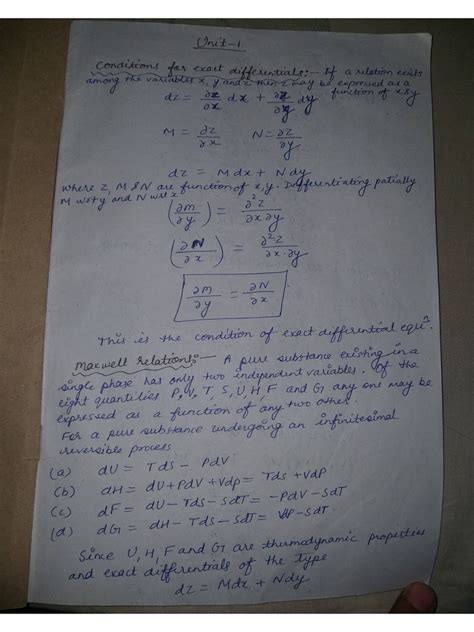 Unit-1
Conditions for exact differentials:- If a relation exists
among the variables x, y and z then z may be expressed as a
function of x & y
dz = ∂z/∂x dx + ∂z/∂y dy
M = ∂z/∂x N = ∂z/∂y
dz = Mdx + Ndy
where z, M & N are function of x, y. Differentiating partially
M wrt y and N wrt x
(∂M/∂y) = ∂²z/∂x∂y
(∂N/∂x) = ∂²z/∂x.∂y
∂M/∂y = ∂N/∂x
This is the condition of exact differential equⁿ.
Maxwell relations:- A pure substance existing in a
single phase has only two independent variables. Of the
eight quantities P, V, T, S, U, H, F and G any one may be
expressed as a function of any two other.
For a pure substance undergoing an infinitesimal
reversible process
(a) dU = Tds - PdV
(b) dH = dU + PdV + Vdp = Tds + Vdp
(c) dF = dU - Tds - SdT = -PdV - SdT
(d) dG = dH - Tds - SdT = Vdp - SdT
Since U, H, F and G are thermodynamic properties
and exact differentials of the type
dz = Mdx + Ndy